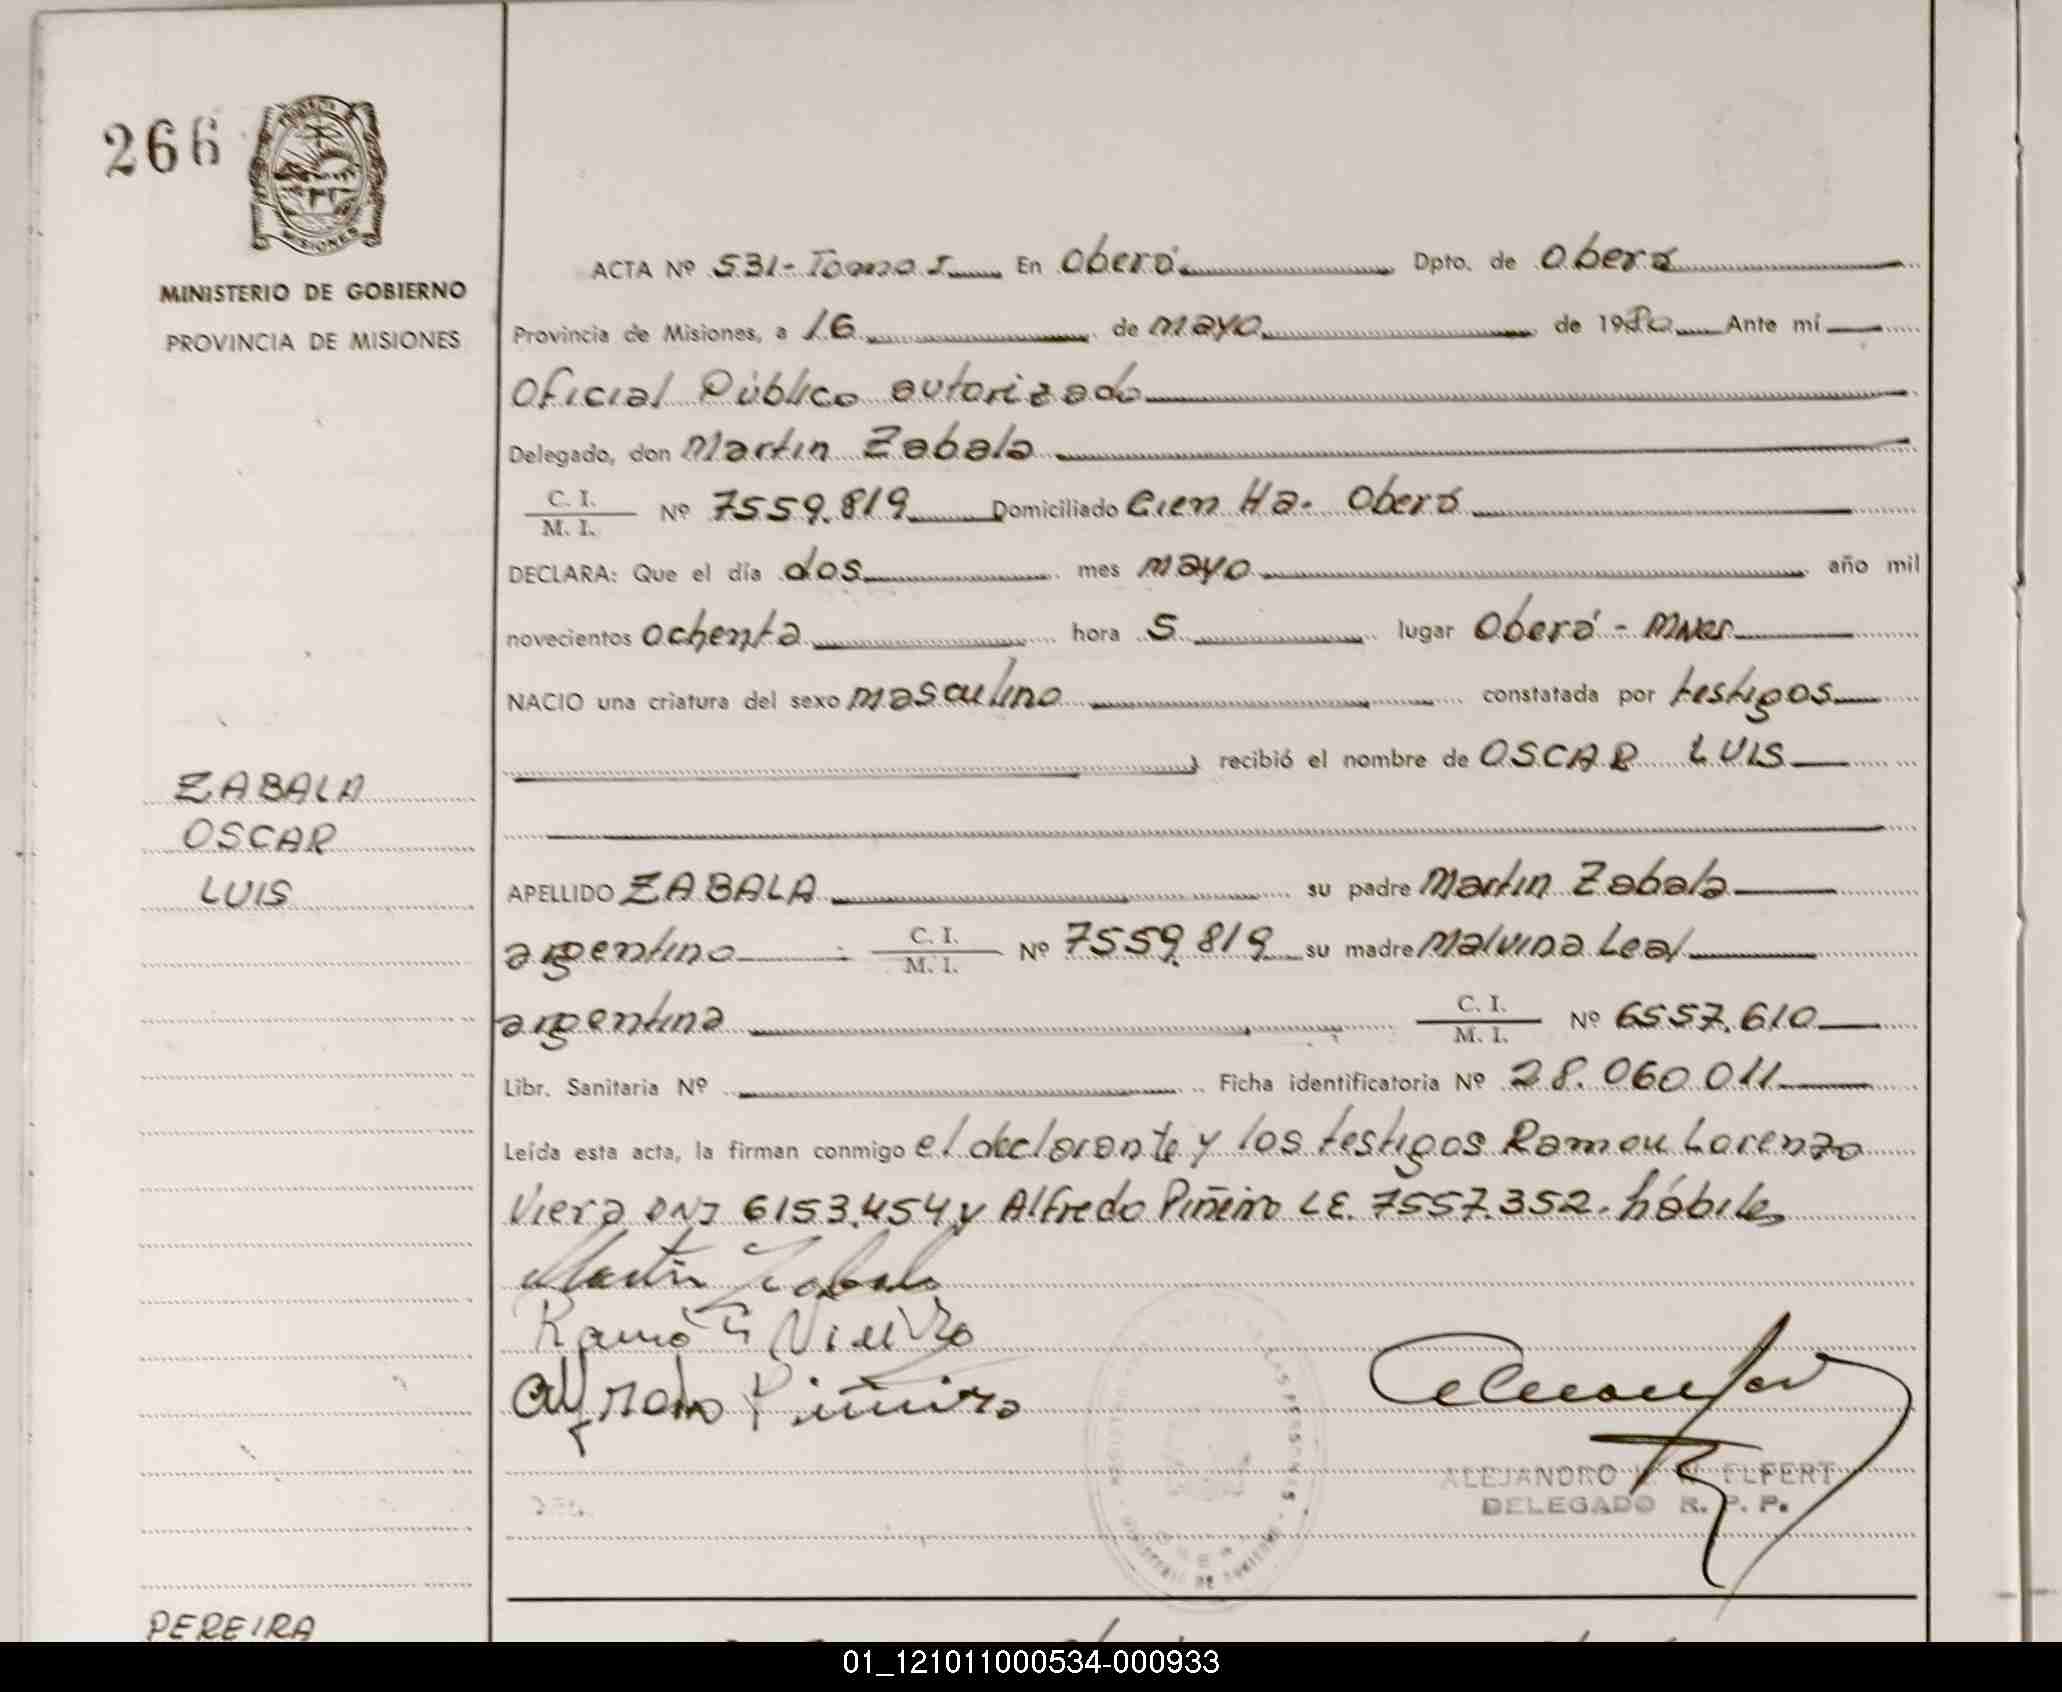 266
MISIONES
MINISTERIO DE GOBIERNO
PROVINCIA DE MISIONES
ACTA Nº 531- Tomo I En Oberá Dpto. de Oberá
Provincia de Misiones, a 16 de mayo de 1980 Ante mí
Oficial Público autorizado
Delegado, don Martin Zabala
C. I.
M. I. Nº 7559.819 Domiciliado Cien Ha. Oberá
DECLARA: Que el día dos mes mayo año mil
novecientos ochenta hora 5 lugar Oberá - Mnes
NACIO una criatura del sexo masculino constatada por testigos
recibió el nombre de OSCAR LUIS
ZABALA
OSCAR
LUIS
APELLIDO ZABALA su padre Martin Zabala
argentino C. I. M. I. Nº 7559.819 su madre Malvina Leal
argentina C. I. M. I. Nº 6557.610
Libr. Sanitaria Nº Ficha identificatoria Nº 28.060.011
Leída esta acta, la firman conmigo el declarante y los testigos Ramon Lorenzo
Viera DNI 6153.454 y Alfredo Piñeiro LE. 7557.352. hábiles
Martin Zabala
Ramón Vi
Alfredo Piñeiro
ALEJANDRO ELFERT
DELEGADO R. P. P.
LAS PERSONAS
PEREIRA
01_121011000534-000933